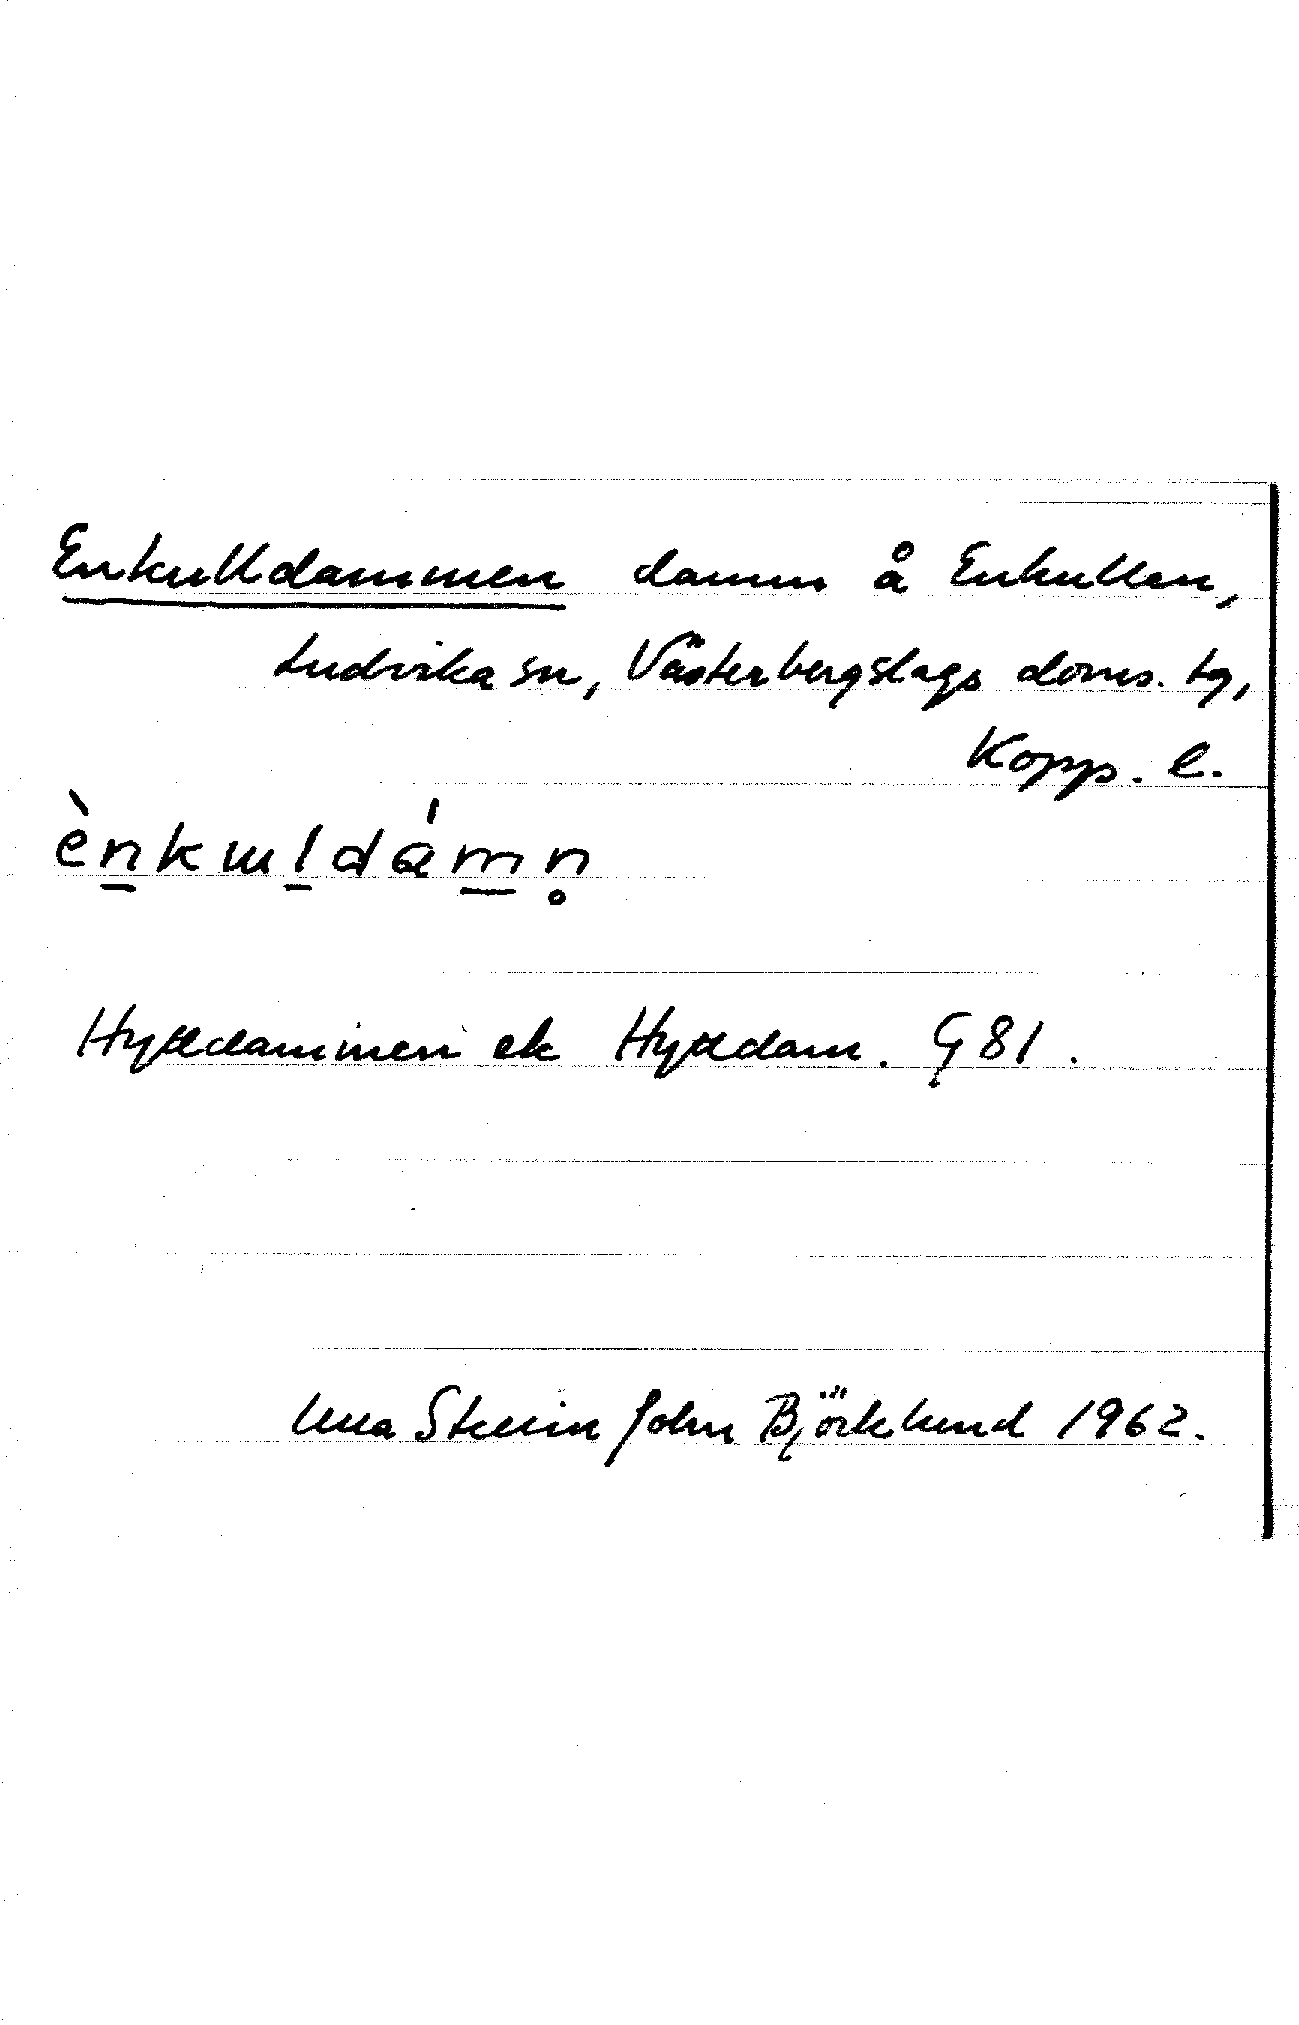 Enkulldammen damm å Enkullen,
Ludvika sn, Västerbergslags doms. tg,
Kopp. l.
ènkɯldámn̥
Hyttdammen ek Hyttdam. G 81.
John Björklund 1962.